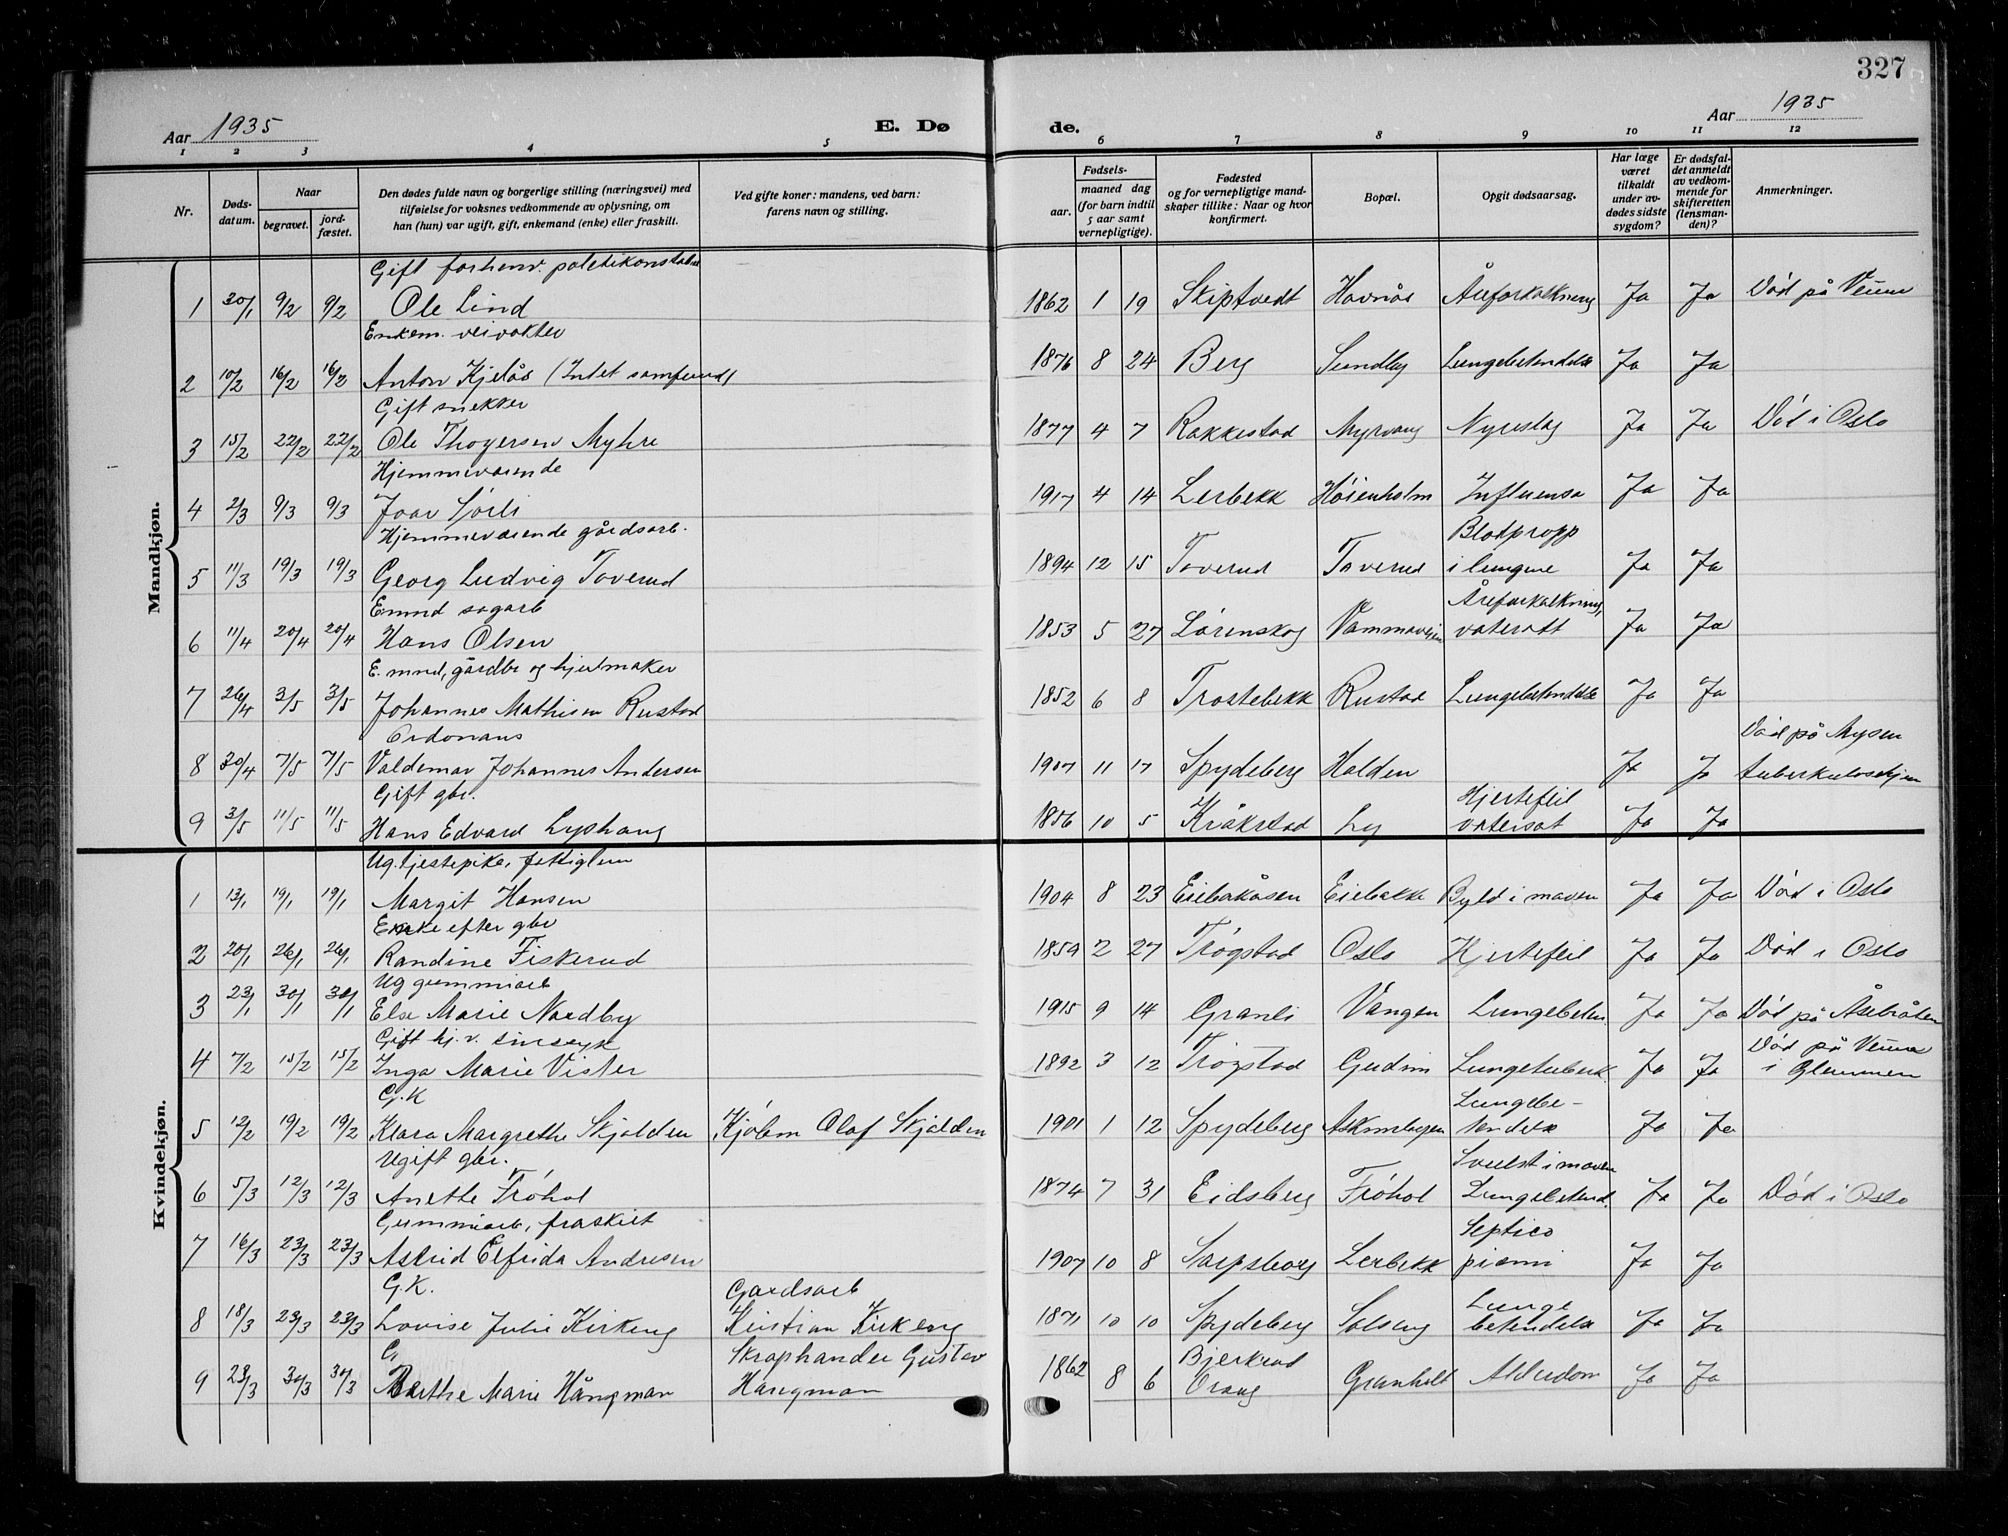 327
Aar 1935
E. Dø
de.
Aar 1935
1 2 3 4 5 6 7 8 9 10 11 12
Nr.
Døds-
datum.
Naar
begravet.
jord-
fæstet.
Den dødes fulde navn og borgerlige stilling (næringsvei) med
tilføielse for voksnes vedkommende av oplysning, om
han (hun) var ugift, gift, enkemand (enke) eller fraskilt.
Ved gifte koner: mandens, ved barn:
farens navn og stilling.
Fødsels-
aar.
maaned dag
(for barn indtil
5 aar samt
vernepligtige).
Fødested
og for vernepligtige mand-
skaper tillike: Naar og hvor
konfirmert.
Bopæl.
Opgit dødsaarsag.
Har læge
været
tilkaldt
under av-
dødes sidste
sygdom?
Er dødsfal-
det anmeldt
av vedkom-
mende for
skifteretten
(lensman-
den)?
Anmerkninger.
Mandkjøn.
Gift forhenv. politikonstabel
1 30/1 9/2 9/2 Ole Lind 1862 1 19 Skiptvedt Havnås Åreforkalkning Ja Ja Død på Veum
Enkem. veivokter
2 10/2 16/2 16/2 Anton Kjelås (Intet samfund) 1876 8 24 Berg Sundby Lungebetendelse Ja Ja
Gift snekker
3 15/2 22/2 22/2 Ole Thoresen Myhre 1877 4 7 Rakkestad Myrvang Nyreslag Ja Ja Død i Oslo
Hjemmeværende
4 2/3 9/3 9/3 Joar Sørli 1917 4 14 Lerbekk Høienholm Influensa Ja Ja
Hjemmeværende gårdsarb. Blodpropp
5 11/3 19/3 19/3 Georg Ludvig Taverud 1894 12 15 Taverud Taverud i lungene Ja Ja
Emnd sagarb Åreforkalkning,
6 11/4 20/4 20/4 Hans Olsen 1853 5 27 Lørenskog Vammaveien vatersott Ja Ja
E. mnd, gårdbr og hjulmaker
7 26/4 3/5 3/5 Johannes Mathisen Rustad 1852 6 8 Trostebekk Rustad Lungebetendelse Ja Ja
Ordonans Død på Mysen
8 30/4 7/5 7/5 Valdemar Johannes Andersen 1907 11 17 Spydeberg Halden Ja Ja tuberkulosehjem
Gift gbr. Hjertefeil
9 3/5 11/5 11/5 Hans Edvard Lyshaug 1856 10 5 Kråkstad Ly vatersot Ja Ja
Kvindekjøn.
Ug. tjestepike, fattiglem
1 13/1 19/1 19/1 Margit Hansen 1904 8 23 Eiebakåsen Eiebakke Byld i maven Ja Ja Død i Oslo
Enke efter gbr
2 20/1 26/1 26/1 Randine Fiskerud 1859 2 27 Trøgstad Oslo Hjertefeil Ja Ja Død i Oslo
Ug gummiarb
3 23/1 30/1 30/1 Else Marie Nordby 1915 9 14 Granli Vangen Lungebeten. Ja Ja Død på Åsebråten
Gift hj. v. sinssyk Død på Veum
4 7/2 15/2 15/2 Inga Marie Vister 1892 3 12 Trøgstad Gudim Lungetuberk. Ja Ja i Glemmen
G.K Lungebe-
5 12/2 19/2 19/2 Klara Margrethe Skjolden Kjøbm Olaf Skjolden 1901 1 12 Spydeberg Askimbyen tendelse Ja Ja
Ugift gbr. Svulst i maven
6 5/3 12/3 12/3 Anethe Frøhol 1874 7 31 Eidsberg Frøhol Lungebetend. Ja Ja Død i Oslo
Gummiarb, fraskilt Septico
7 16/3 23/3 23/3 Astrid Elfrida Andresen 1907 10 8 Sarpsborg Lerbekk piemi Ja Ja
G.K. Gardsarb Lunge
8 18/3 23/3 23/3 Lovise Julie Kirkeng Kristian Kirkeng 1871 10 10 Spydeberg Solseng betendelse Ja Ja
G. Skraphandler Gustav Bjerkrud
9 23/3 30/3 30/3 Berthe Marie Hångman Hångman 1862 8 6 Granholt Alderdom Ja Ja